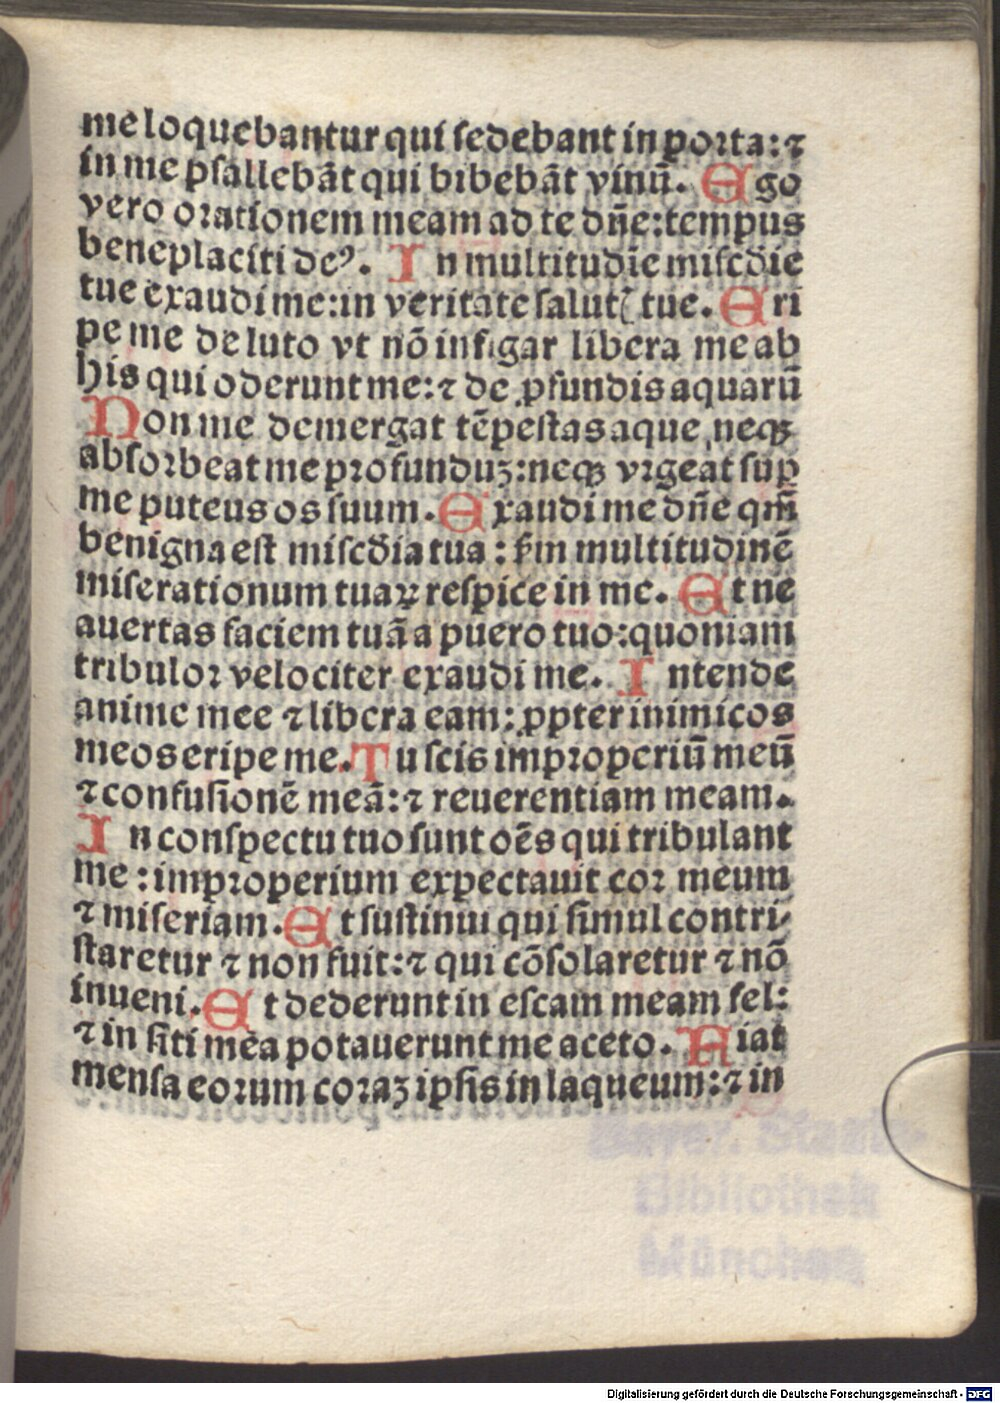 me loquebantur qui sedebant in porta: ⁊
in me psallebāt qui bibebāt vinū. Ego
vero orationem meam ad te dn̄e: tempus
beneplaciti deꝰ. In multitudīe misc̄die
tue exaudi me: in veritate salutꝭ tue. Eri
pe me de luto vt nō infigar libera me ab
his qui oderunt me: ⁊ de ꝓfundis aquarū
Non me demergat tēpestas aque neqꝫ
absorbeat me profunduꝫ: neqꝫ vrgeat suꝑ
me puteus os suum. Exaudi me dn̄e qm̄
benigna est misc̄dia tua: ẜm multitudinē
miserationum tuaꝝ respice in me. Et ne
auertas faciem tuā a puero tuo: quoniam
tribulor velociter exaudi me. Intende
anime mee ⁊ libera eam: ꝓpter inimicos
meos eripe me. Tu scis improperiū meū
⁊ confusionē meā: ⁊ reuerentiam meam.
In conspectu tuo sunt oēs qui tribulant
me: improperium expectauit cor meum
⁊ miseriam. Et sustinui qui simul contri/
staretur ⁊ non fuit: ⁊ qui cōsolaretur ⁊ nō
inueni. Et dederunt in escam meam fel:
⁊ in siti mea potauerunt me aceto. Fiat
mensa eorum coraꝫ ipsis in laqueum: ⁊ in
Bayer. Staats-
Bibliothek
München
Digitalisierung gefördert durch die Deutsche Forschungsgemeinschaft - DFG